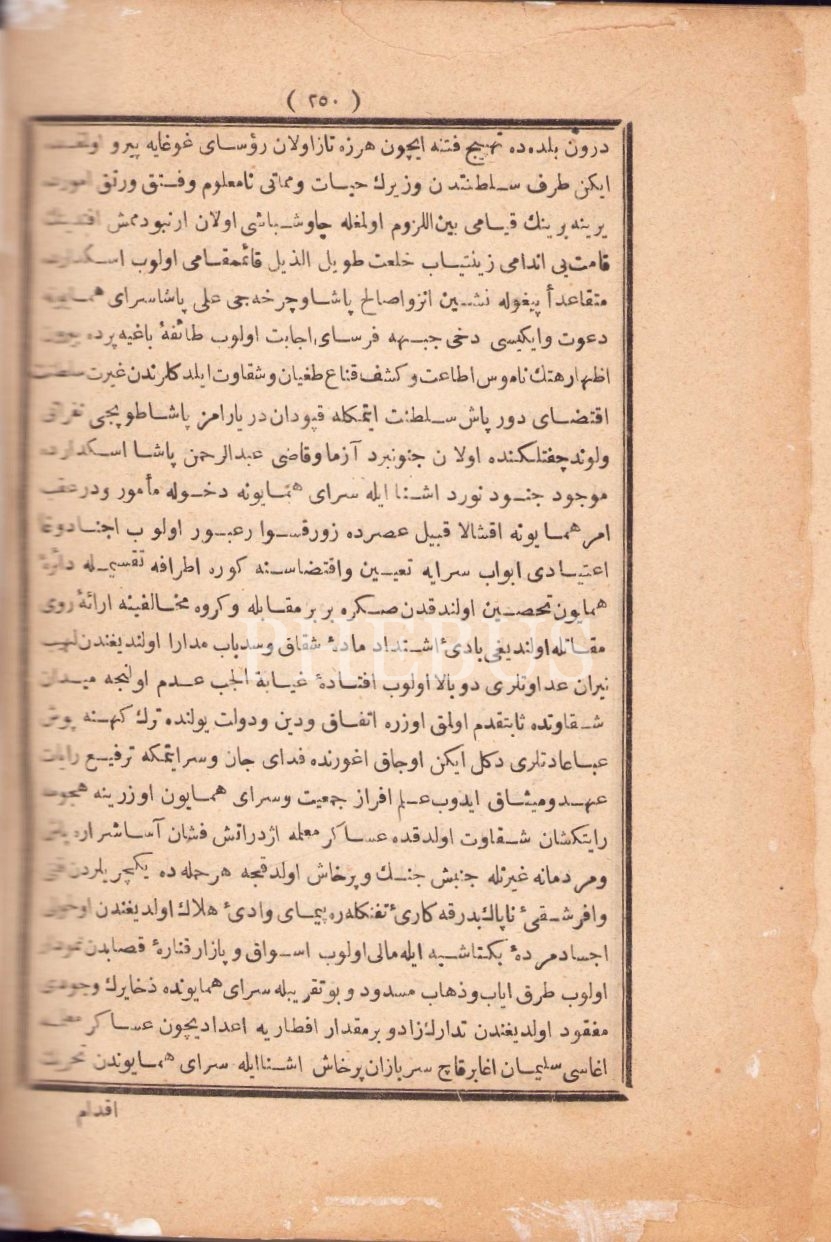 ( ٢٥٠ )
درون بلده ده تهييج فتنه ايچون هرزه تاز اولان رؤساى غوغايه پيرو
ايكن طرف سلطنتدن وزيرك حيات ومماتى نامعلوم وفتق ورتق امورك
يرينه برينك قيامى بين اللزوم اولمغله چاوشباشى اولان ارنبود ممش افندينك
قامت بى اندامى زينتياب خلعت طويل الذيل قائممقامى اولوب اسكدارده
متقاعداً پيغوله نشين انزوا صالح پاشا وچرخه جى على پاشا سراى همايونه
دعوت وايكيسى دخى جبهه فرساى اجابت اولوب طائفۀ باغيه پرده
اظهار هتك ناموس اطاعت وكشف قناع طغيان وشقاوت ايلدكلرندن غيرت سلطنت
اقتضاى دور پاش سلطنت ايتمكله قپودان دريا رامز پاشا طوپجى نفراتى
ولوند چفتلكنده اولان جنونبرد آزما وقاضى عبدالرحمن پاشا اسكدارده
موجود جنود نورد اشنا ايله سراى همايونه دخوله مأمور ودرعقب
امر همايونه اقشالا قبيل عصرده زورقسوار عبور اولوب اجناد وغا
اعتيادى ابواب سرايه تعيين واقتضاسنه كوره اطرافه تقسيم له دائرۀ
همايون تحصين اولندقدن صكره بربر مقابله وكروه مخالفينه ارائۀ روى
مقاتله اولنديغى بادىء اشتداد مادۀ شقاق وسدباب مدارا اولنديغندن لهيب
نيران عداوتلرى دوبالا اولوب افتادۀ غيابة الجب عدم اولنجه ميدان
شقاوتده ثابتقدم اولمق اوزره اتفاق ودين ودولت يولنده ترك كهنه پوش
عباعادتلرى دكل ايكن اوجاق اغورنده فداى جان وسر ايتمكه ترفيع رايات
عهد وميثاق ايدوب علم افراز جمعيت وسراى همايون اوزرينه هجوم
رايتكشان شقاوت اولدقده عساكر معلمه اژدر اتش فشان آسا شراره پاش
ومردمانه غيرتله جنبش جنك وپرخاش اولدقجه هر حمله ده يكيچريلردن
وافر شقىء ناپاك بدرقه كارىء تفنكله ره پيماى وادىء هلاك اولديغندن
اجساد مردۀ بكتاشيه ايله مالى اولوب اسواق و پازار قنارۀ قصابدن نمودار
اولوب طرق اياب وذهاب مسدود و بوتقريبله سراى همايونده ذخايرك وجودى
مفقود اولديغندن تدارك زاد و برمقدار افطاريه اعداديچون عساكر
اغاسى سليمان اغا برقاچ سربازان پرخاش اشنا ايله سراى همايوندن تحرك
اقدام